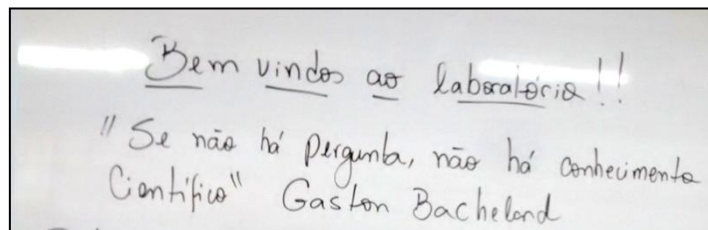 Bem vindos ao laboratório!!
"Se não há pergunta, não há conhecimento
Científico" Gaston Bachelard